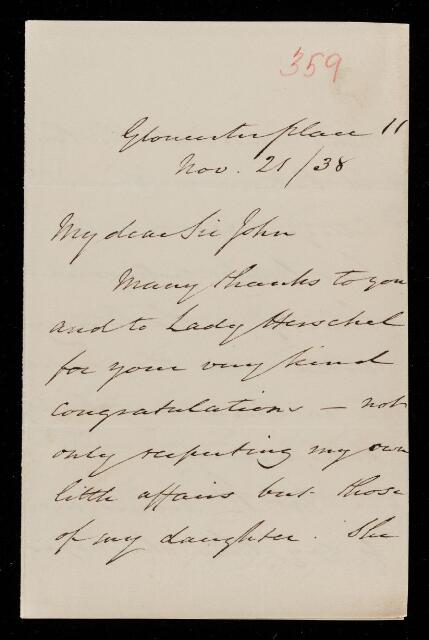 359
Gloucester place 11
Nov. 21/38
My dear Sir John
Many thanks to you
and to Lady Herschel
for your very kind
congratulations – not
only respecting my own
little affairs but those
of my daughter. She